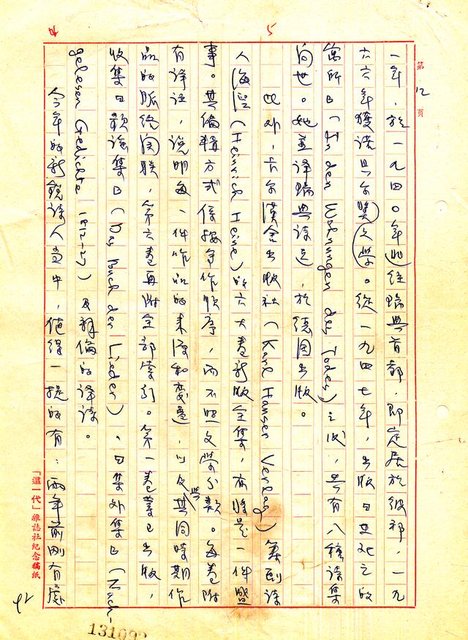 第12頁
一年,於一九四〇年逃往瑞典首都,即定居於彼邦,一九
六六年獲諾貝尔奬(文學)。從一九四七年,出版日死亡之的
寓所日(In den Wohnungen des Todes)之後,共有八種詩集
向世。她並譯瑞典詩选,於德国出版。
此外,卡尔漢金出版社(Karl Hanser Verlag)籌劃詩
人海涅(Heinrich Heine)的六大卷新版全集,亦將是一件盛
事。其編輯方式係按寫作順序,而不照文学分類。每卷附
有詳註,說明每一件作品的来源和变遷,以及與其同時期作
品的脈絡関联,第六卷再附全部索引。第一卷業已出版,
收集日歌謠集日(Das Buch der Lieder)、日集外集日(Nach-
gelesen Gedichte 1812-27)及拜倫的译诗。
今年的新銳诗人当中,值得一提的有:兩年前刚有處
「這一代」雜誌社紀念稿紙